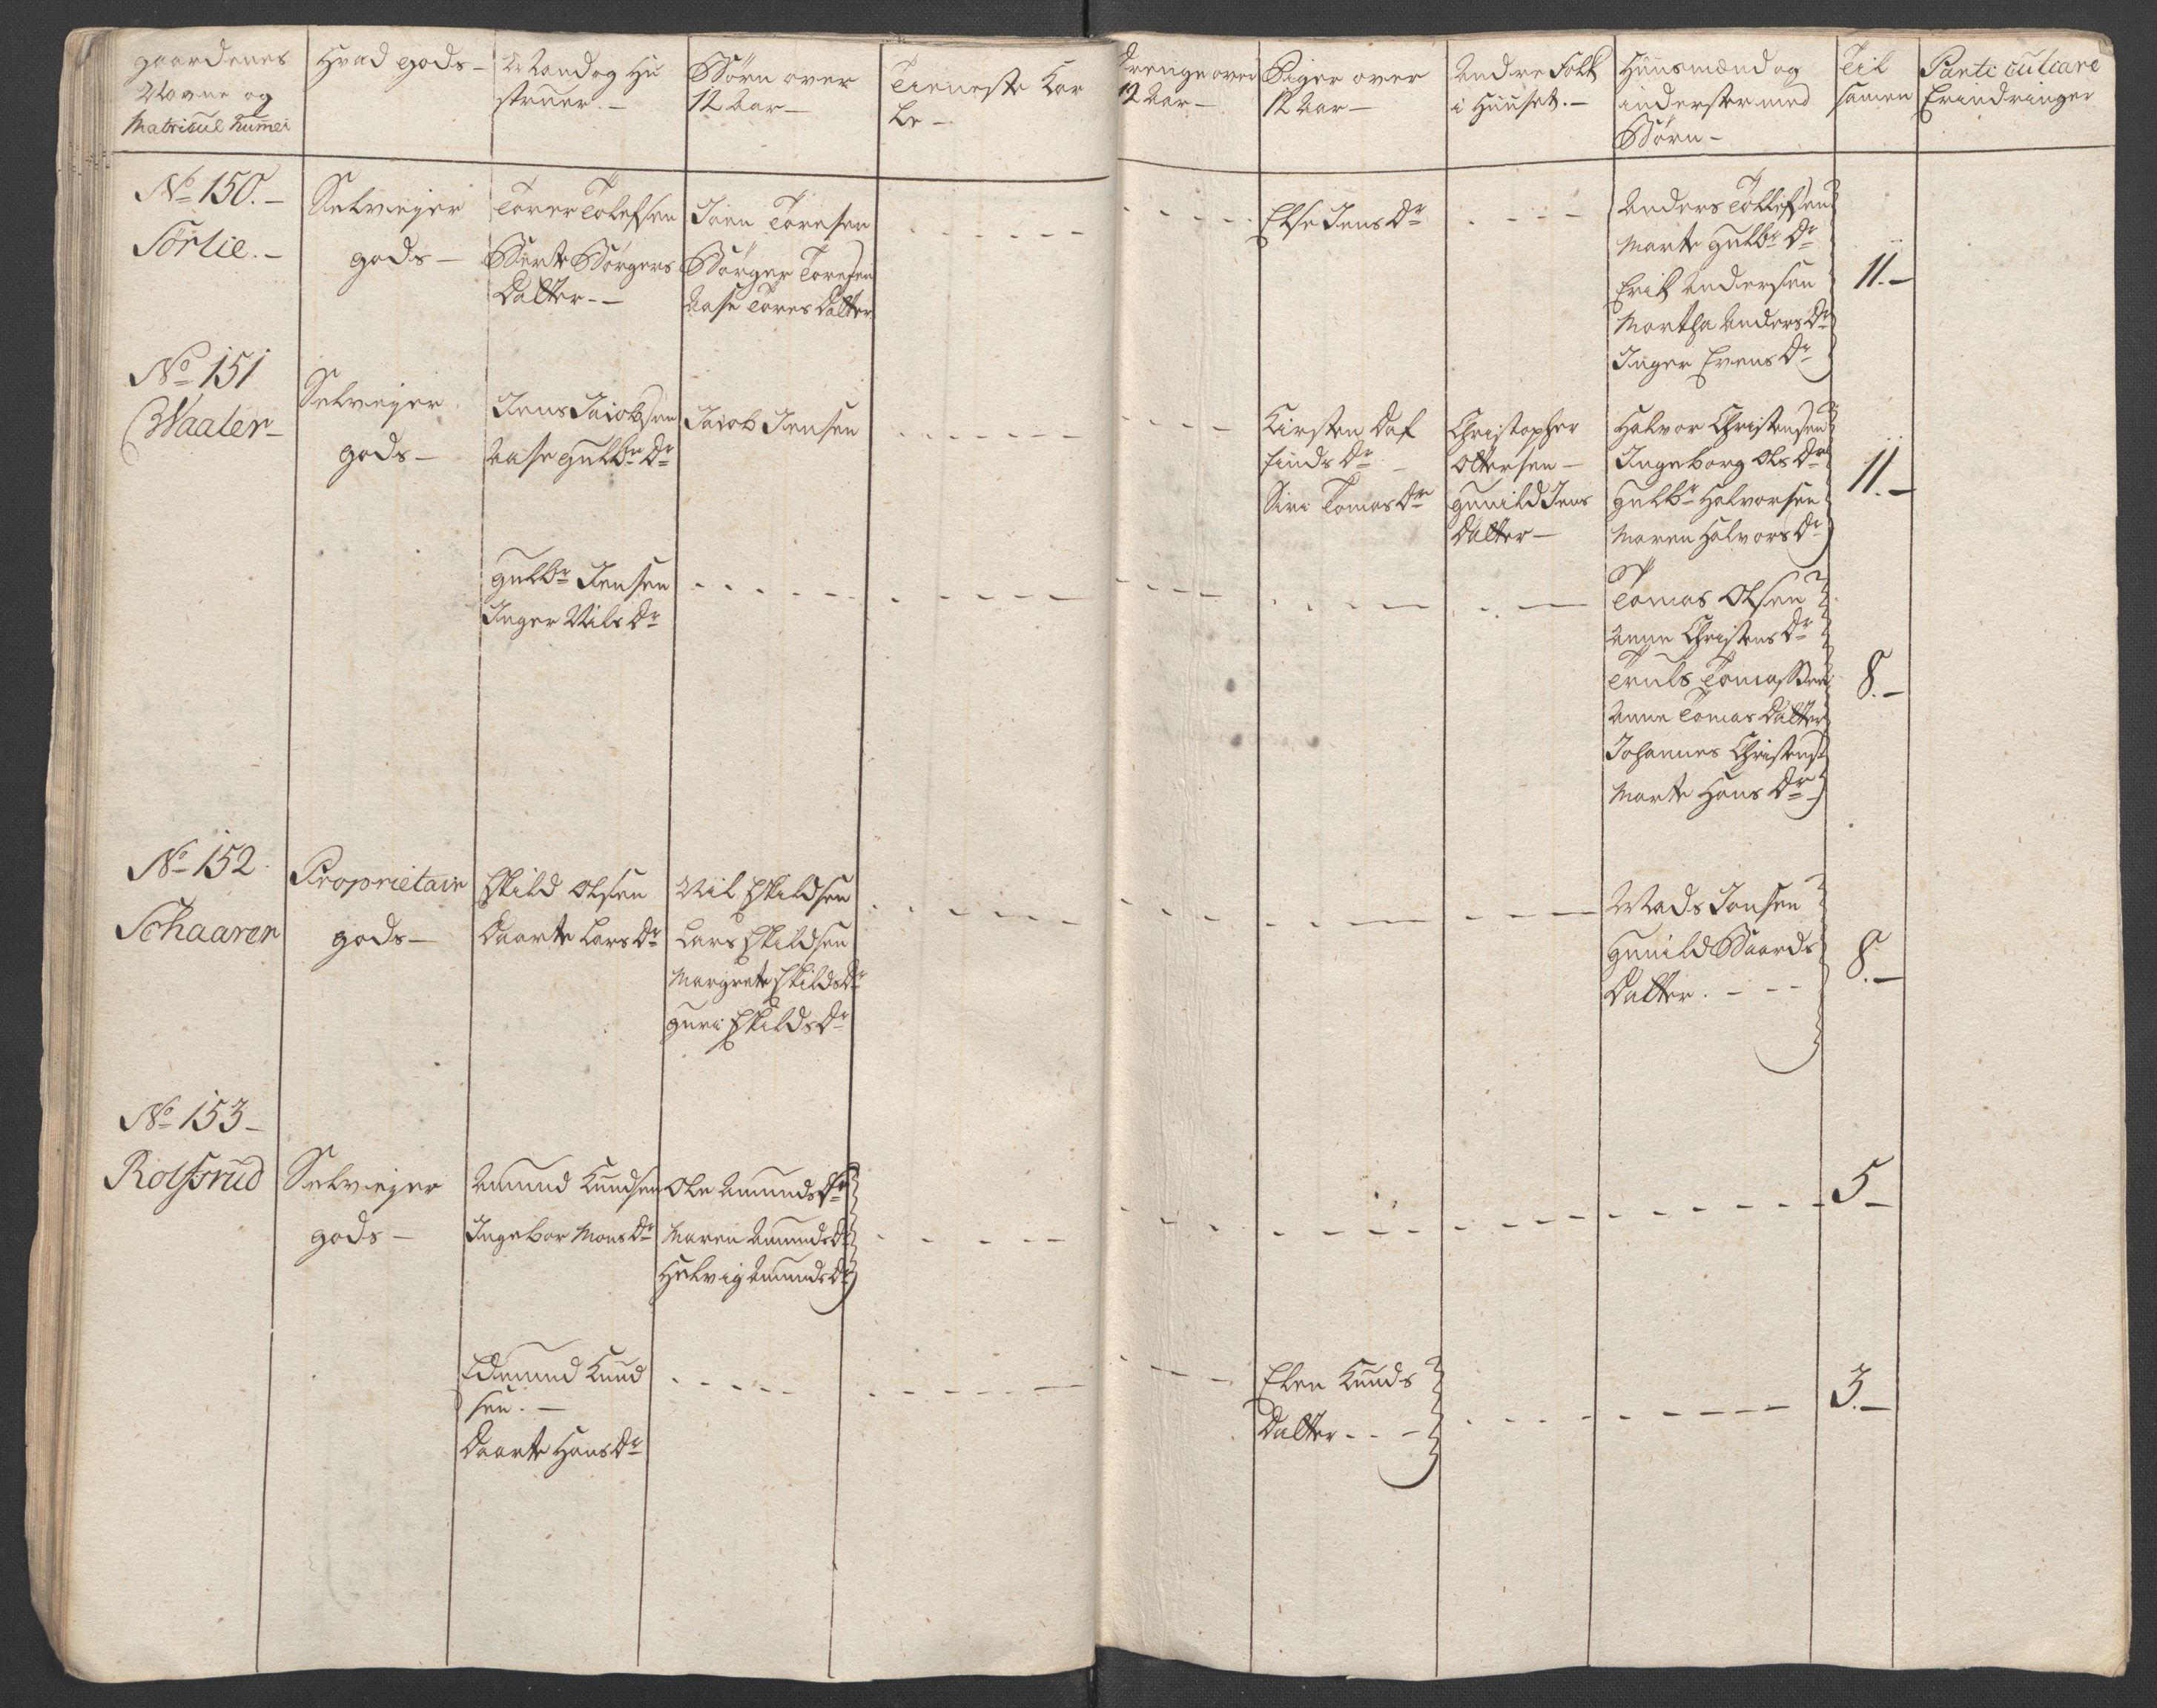 gaardenes
Navne og
Matricul Numer
Hvad gods -
Mand og Hu
struer. -
Børn over
12 Aar -
Tieneste Kar
le -
Drenge over
12 Aar -
Piger over
12 Aar -
Andre Folk
i Huuset. -
Huusmænd og
inderster med
Børn -
Til
samen
Particulaire
Erindringer
No 150. -
Sörlie. -
Selveyer
gods -
Torer Tolefsen
Berte Børgers
Datter. -
Joen Toresen
Børger Toresen
Aase Tores Datter
Else Jens Dr
Anders Tollefsen
Marte Gulbr Dr
Erik Andersen
Martha Anders Dr
Inger Evens Dr
11. -
No 151
Waaler -
Selveyer
gods -
Jens Jacobsen
Aase Gulbr Dr
Jacob Jensen
Kirsten Daf
finds Dr -
Siri Tomas Dr
Christopher
Ottersen -
Gunild Jens
Datter -
Halvor Christensen
Ingeborg Ols Dr
Gulbr Halvorsen
Maren Halvors Dr
11. -
Gulbr Jensen
Inger Nils Dr
Tomas Olsen
Anne Christens Dr
Truls Tomassen
Anne Tomas Datter
Johannes Christens
Marte Hans Dr
8. -
No 152.
Schaaren
Proprietair
gods -
Eskild Olsen
Daarte Lars Dr
Nil Eskildsen
Lars Eskildsen
Margrete Eskilds Dr
Guri Eskilds Dr
Mads Jonsen
Gunild Baards
Datter. - - -
8. -
No 153 -
Rolfsrud
Selveyer
gods -
Amund Knudsen
Ingebor Mons Dr
Ole Amunds
Maren Amunds Dr
Helvig Amunds Dr
5 -
Edmund Knud
sen. -
Daarte Hans Dr
Elen Knuds
Datter. - -
3. -